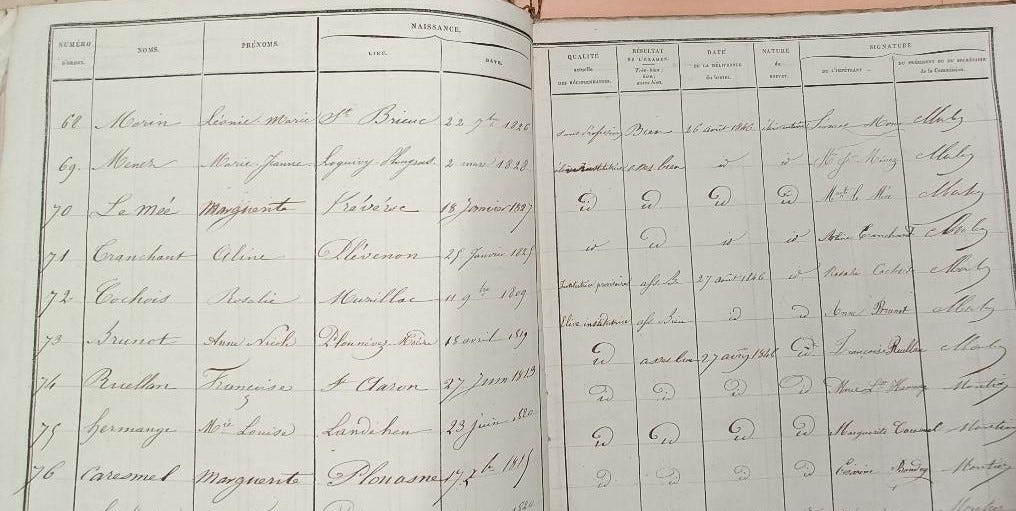 NUMÉRO D'ORDRE. NOMS. PRÉNOMS. NAISSANCE. LIEU. DATE. QUALITÉ actuelle DES RÉCIPIENDAIRES. RÉSULTAT DE L'EXAMEN. Très-bien; bien; assez bien. DATE DE LA DÉLIVRANCE du brevet. NATURE du BREVET. SIGNATURE DE L'IMPÉTRANT. DU PRÉSIDENT OU DU SECRÉTAIRE de la Commission.
68 Morin Léonie Marie St Brieuc 22 9bre 1826 sans profession Bien 26 août 1846 élémentaire Léonie Morin
69. Menez Marie Jeanne Loguivy Plougras 2 mai 1828 assez bien id id
70 Le Méé Marguerite Trévérec 18 Janvier 1827 id id id id Mte le Méé
71 Tranchant Aline Plévenon 25 Janvier 182 id id id id Aline Tranchant
72 Cochois Rosalie Muzillac 11 9bre 1809 Institutrice provisoire ass B 27 août 1846 id Rosalie Cochois
73 Brunot Anne Plounévez 18 avril 1819 Elève institutrice ass Bien id id Anne Brunot
74 Ruellan Françoise St 27 Juin 1813 id assez bien 27 1846 id Françoise Ruellan
75 hermange Mie Louise Landehen 23 juin 1820 id id id id Marie Lse
76 Caresmel Marguerite Plouasne 17 7bre 181 id id id id Marguerite Caresmel
id id id id
1820